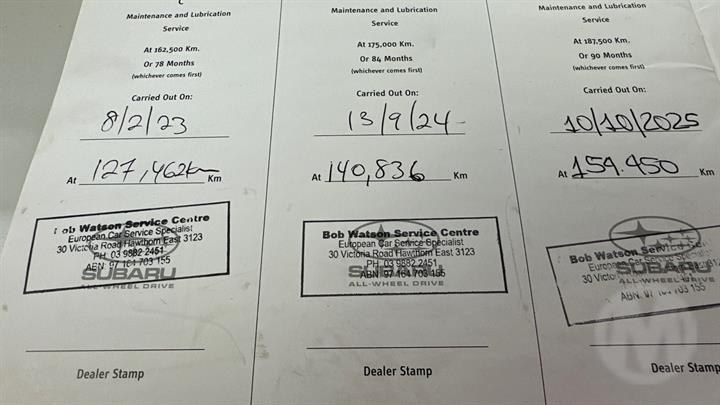 C
Maintenance and Lubrication
Service
At 162,500 Km.
Or 78 Months
(whichever comes first)
Carried Out On:
8/2/23
At 127,462km Km
Bob Watson Service Centre
European Car Service Specialist
30 Victoria Road Hawthorn East 3123
PH: 03 9882 2451
ABN: 97 164 703 155
SUBARU
ALL-WHEEL DRIVE
Dealer Stamp
Maintenance and Lubrication
Service
At 175,000 Km.
Or 84 Months
(whichever comes first)
Carried Out On:
13/9/24
At 140,836 Km
Bob Watson Service Centre
European Car Service Specialist
30 Victoria Road Hawthorn East 3123
PH: 03 9882 2451
ABN: 97 164 703 155
SUBARU
ALL-WHEEL DRIVE
Dealer Stamp
Maintenance and Lubrication
Service
At 187,500 Km.
Or 90 Months
(whichever comes first)
Carried Out On:
10/10/2025
At 154.450 Km
Bob Watson Service
European Car Service
30 Victoria
SUBARU
ALL-WHEEL DRIVE
ABN: 97 164 703 155
Dealer Stamp